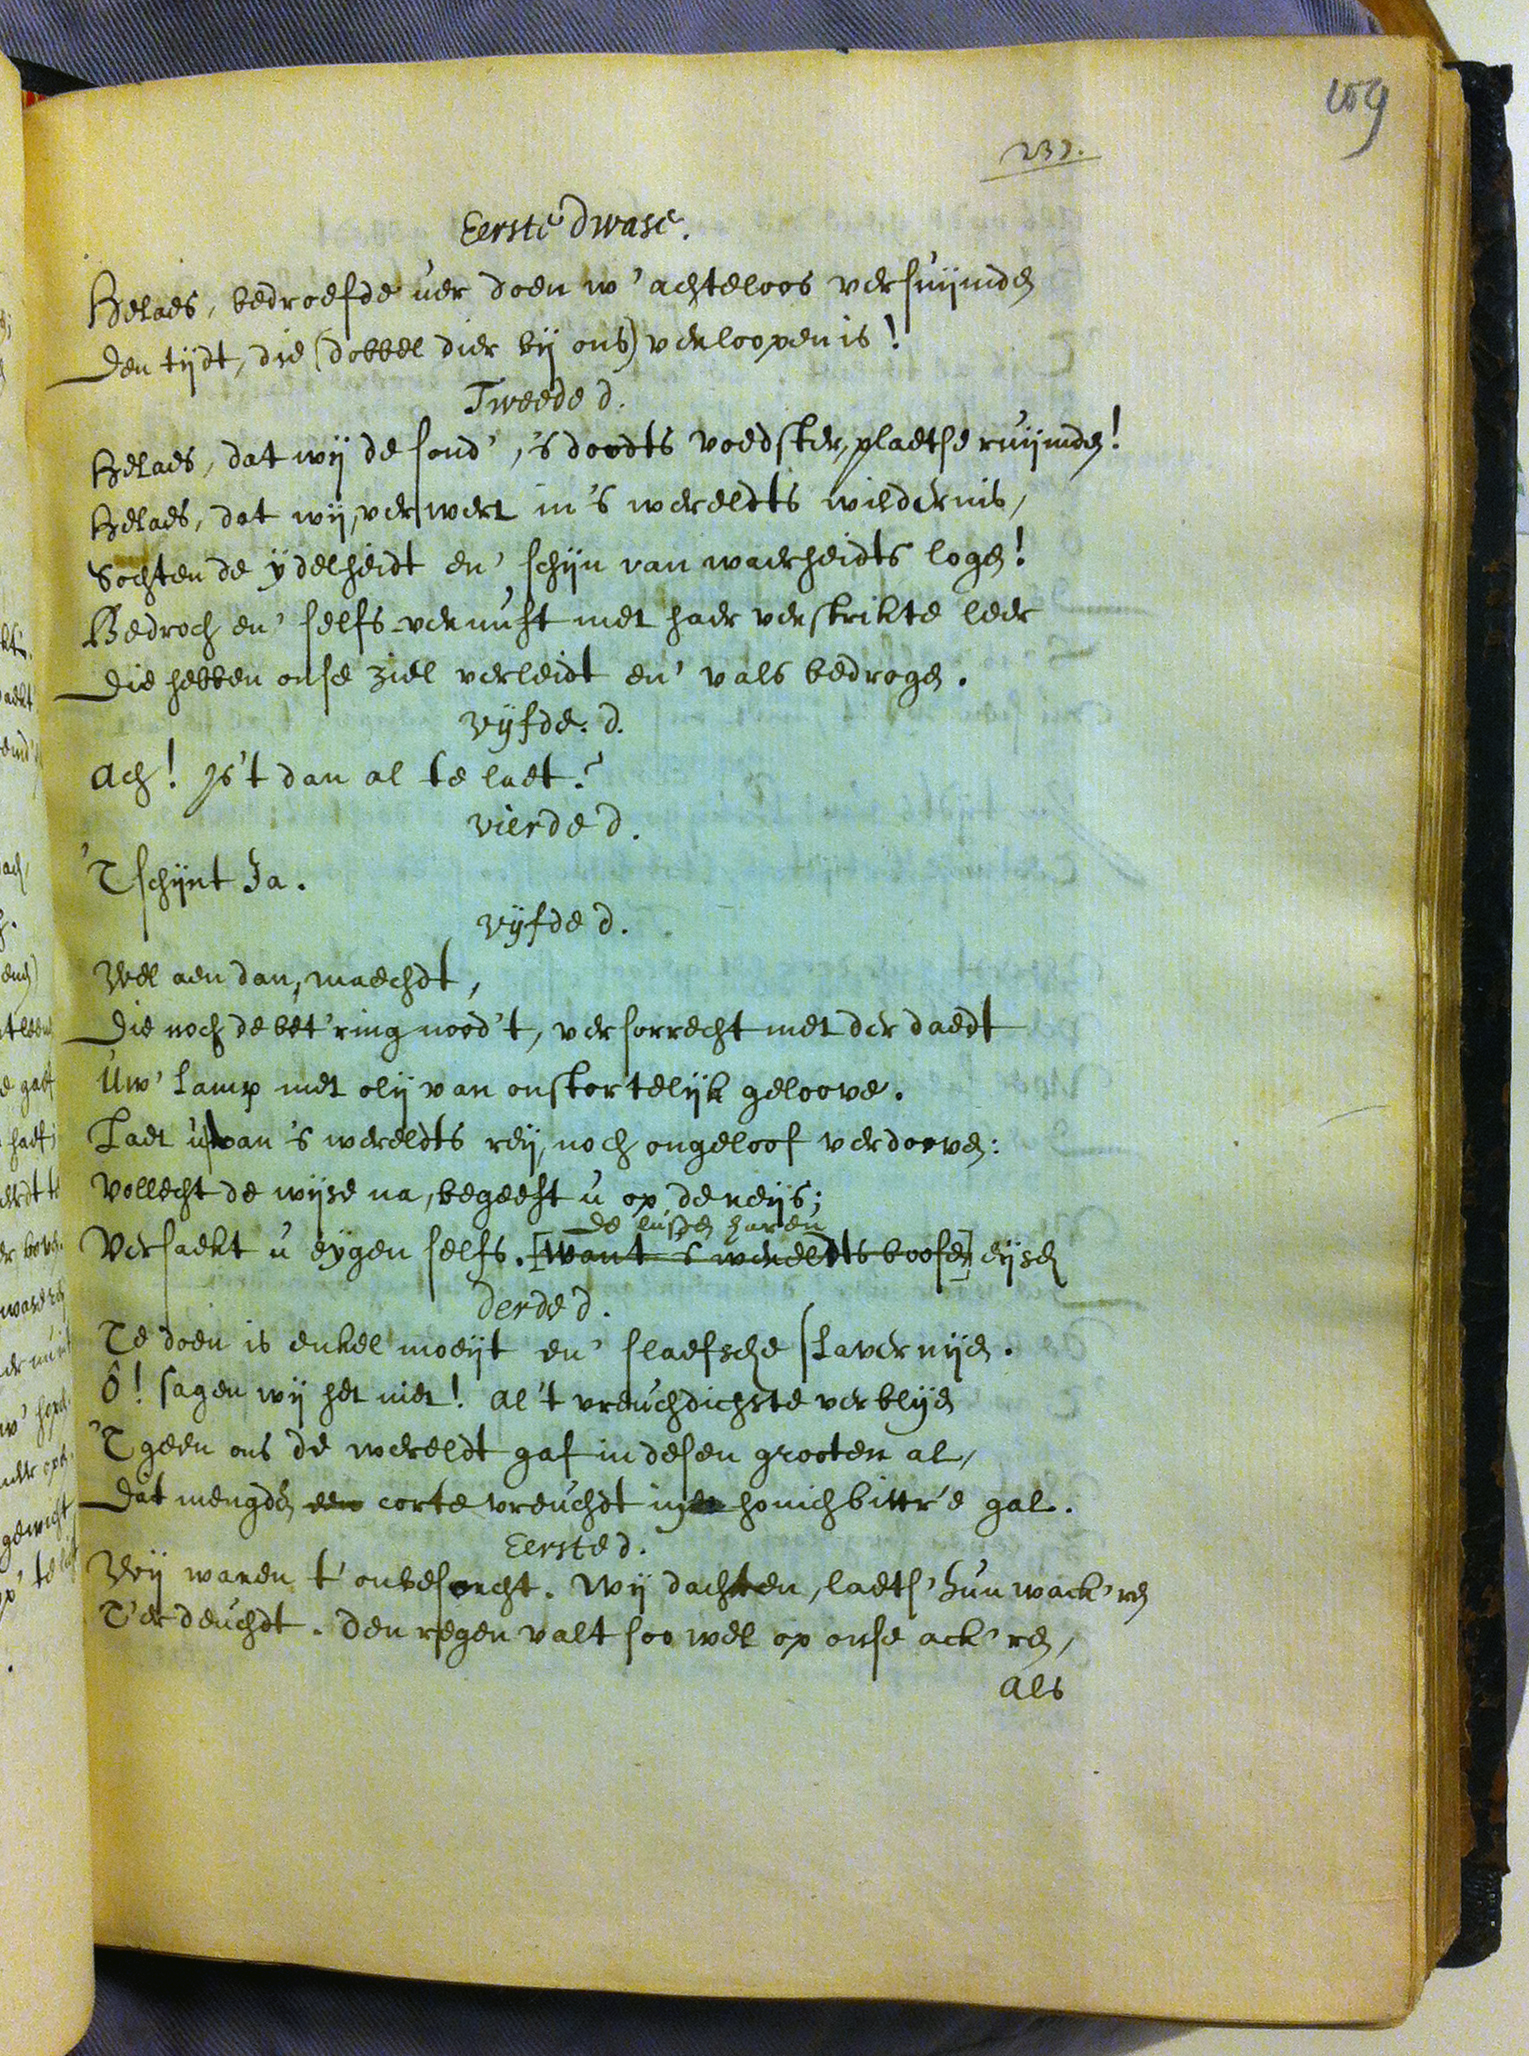 109
232.
Eerste dwase.
Helaes, bedroefde uer doen w' achteloos versuijmden
den tijdt, die (dobbel dier bij ons) verloopen is!
Tweede d.
Helaes, dat wij de sond', 's doodts voedster, plaetse ruijmden!
Helaes, dat wij, verwert in 's wereldts wildernis,
Sochten de ijdelheidt en' schijn van waerheidts logen!
Bedroch en' selfs-vernuft met haer verstrikte leer
die hebben onse ziel verleidt en' vals bedrogen.
vijfde. d.
Ach! Js't dan al te laet?
vierde d.
'Tschijnt Ja.
vijfde d.
Wel aen dan, maechdt,
die noch de bet'ring nood't, versorrecht met der daedt
Uw' Lamp met olij van onstortelijk geloove.
Laet u van 's wereldts reij, noch ongeloof verdooven:
Vollecht de wijse na, begeeft u op de reijs;
de lusten haren
Versaekt u eijgen selfs. [want 's wereldts boose] eijsen
derde d.
Te doen is enkel moeijt en' slaefsche slavernijen.
ô! sagen wij het niet! Al 't vreuchdichste verblijen
'Tgeen ons de wereldt gaf in desen grooten al,
dat mengden een corte vreuchdt in honich bittr'e gal.
Eerste d.
Wij waren t' onbesorcht. Wij dachten, laets' hun wack'ren
T'er deuchdt. den regen valt soo wel op onse ack'ren,
Als